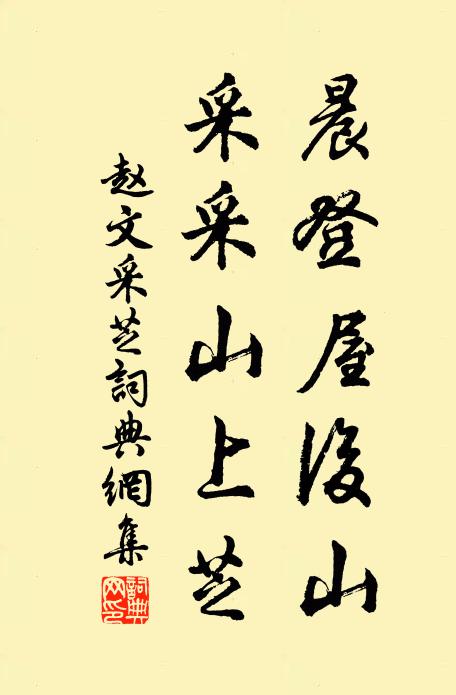 晨登屋後山
采采山上芝
赵文采芝詞典網集
詞典网印